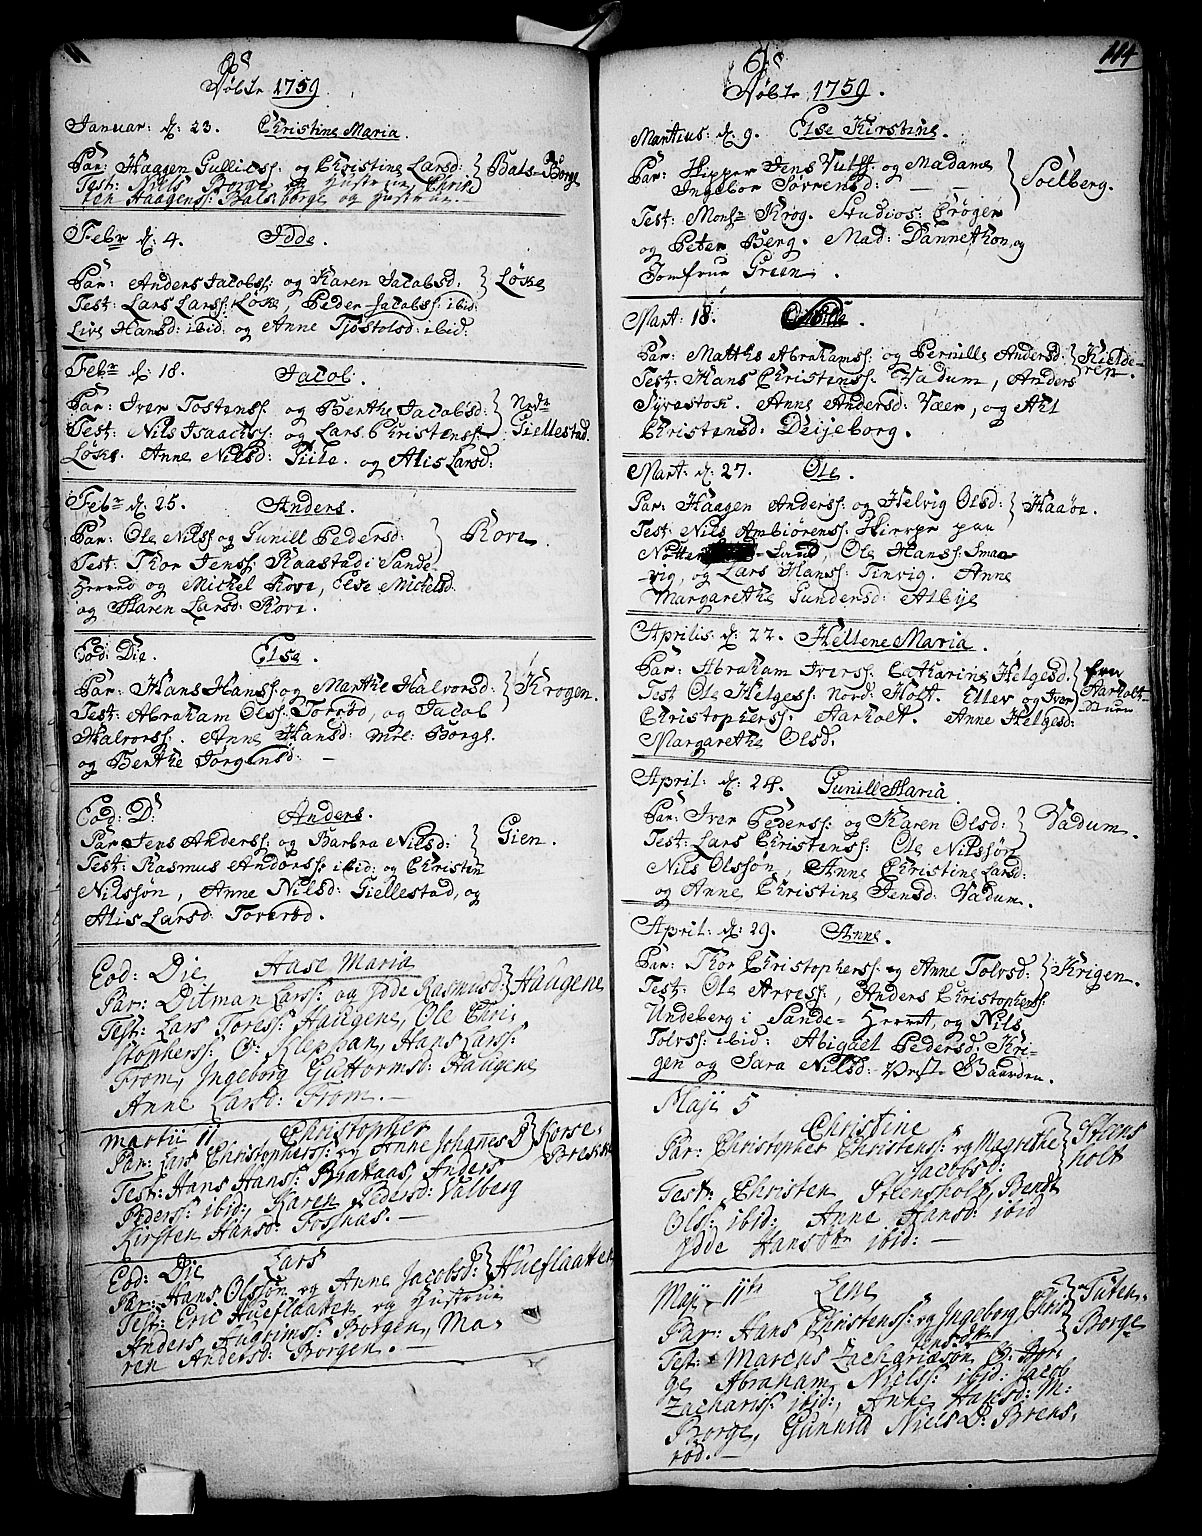 Døbte 1759
Januar: d: 23. Christine Maria.
Par: Haagen Gullicss: og Christine Larsd: } Bals-Borge
Test: Niels Borge og Hustrue, Chris
ten Haagenss: Balsborge og Hustrue.
Febr d: 4. Idde.
Par: Anders Jacobss: og Karen Jacobsd: } Løske
Test: Lars Larss: Løske, Peder Jacobss: ibid:
Live Hansd: ibid: og Anne Tjøstolsd: ibid:
Febr d: 18. Jacob.
Par: Iver Tostenss: og Berthe Jacobsd: } Nedr
Test: Nils Isaachss: og Lars Christenss: Giellestad.
Løske. Anne Nilsd: og Alis Larsd:
Febr d: 25. Anders.
Par: Ole Nilss og Gunill Pedersd: } Rove.
Test: Thor Jenss: Raastad i Sande
Herred og Michel Rove, Else Michelsd
og Maren Larsd: Rove.
Eod: Die. Else.
Par: Hans Hanss: og Marthe Halvorsd: } Krogen.
Test: Abraham Olss: Toverød, og Jacob
Halvorss. Anne Hansd: mel: Borge.
og Berthe Jørgensd: —
Eod: D: Anders.
Par Jens Anderss: og Barbra Nilsd: } Gien.
Test: Rasmus Anderss: ibid: og Christen
Nilssøn, Anne Nilsd: Giellestad, og
Alis Larsd: Toverød.
Eod: Die Aase Maria
Par: Ditman Larss: og Idde Rasmusd: } Haugene
Test: Lars Toress: Haugene, Ole Chri-
stopherss: O: Kleppan, Hans Larss:
From, Ingeborg Guttormsd: Haugene
Anne Larsd: From. —
Martii 11 Christopher
Par: Lars Christopherss: og Anne Johannes D } Korse-
Brekke
Test: Hans Hanss: Brataas, Anders
Pederss: ibid: Karen Pedersd: Valberg
Kirsten Hansd: Fossnæs. —
Eod: Die Lars
Par: Hans Olssøn og Anne Jacobsd: } Hueflaatten
Test: Eric Hueflaatten og Hustrue
Anders Allgrimss: Borgen, Ma-
ren Andersd: Borgen. —
114
Døbte 1759.
Martius: d: 9. Else Kirstine.
Par: Hipper Jens Vulff og Madame } Soelberg.
Ingebor Sørrensd: — —
Test: Monsr Krog. Studios: Crøger
og Peter Berg. Mad: Dannethon, og
Jomfrue Green.
Mart: 18.
Par: Matths Abrahamss: og Pernille Andersd: } Kielde-
ren.
Test: Hans Christenss: Vadum, Anders
Syvestok. Anne Andersd: Væer, og Ahl
Christensd: Deijeborg.
Mart: d: 27. Ole.
Par: Haagen Anderss: og Helvig Olsd: } Haaøe.
Test: Nils Ambiørenss: Hierøe paa
Nøtter Sund, Ole Hanss: Smaa-
vig, og Lars Hanss: Tinvig. Anne
Margarethe Gundersd: Alby
Aprilis: d: 22. Hellene Maria.
Par: Abraham Iverss: Catharine Helgesd. } Ever
Aarholt-
Test Ole Helgess: Nord: Holt. Ellev og Iver
Christopherss: Aarholt. Anne Helgesd:
Margarethe Olsd:
April: d: 24. Gunill Maria.
Par: Iver Pederss: og Karen Olsd: } Vadum.
Test: Lars Christenss: Ole Nilssøn
Nils Olssøn, Anne Christine Larsd:
og Anne Christine Jensd: Vadum.
April: d: 29. Anne.
Par: Thor Christopherss: og Anne Tolvsd: } Krigen.
Test: Ole Arvess:, Anders Christopherss:
Undeberg i Sande-Herret, og Nils
Tolvss: ibid: Abiguel Pedersd: Kri-
gen og Sara Nilsd: Vest-Gaarden.
Maji 5 Christine
Par: Christopher Christenss: og Magrethe } Steens
Jacobsd: holt
Test: Christen Steensholt, Bendt
Ols: ibid: Anne Hansd: ibid
Idde Hansdtr ibid: —
Maji 11te Lene
Par: Hans Christenss: og Ingeborg Christ } Tufen-
ensdtr Borge
Test: Marcus Zachariæsøn O: Bor-
ge Abraham Nielss: ibid: Jacob
Zachariss: ibid:, Anne Hansd: M:
Borge, Gunnild Niels D: Brens-
rød. —